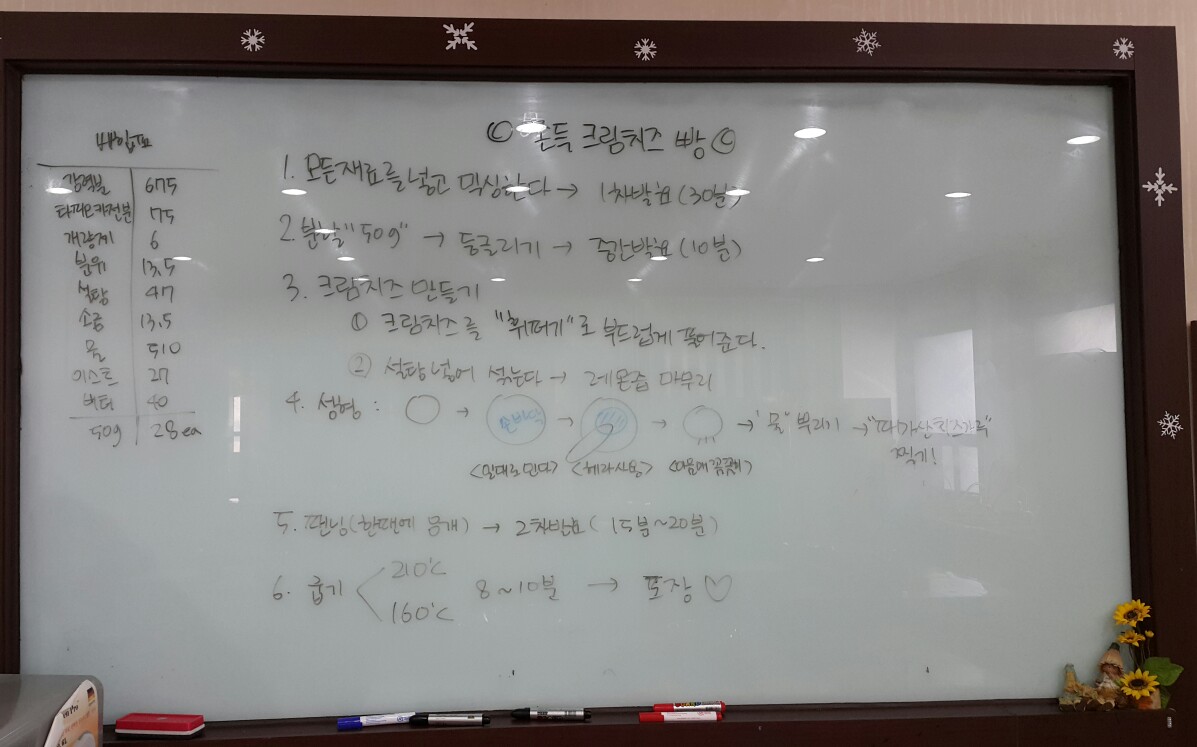 배합표
강력분 675
타피오카전분 175
개량제 6
분유 13.5
설탕 47
소금 13.5
물 510
이스트 27
버터 40
50g 28ea
쫀득 크림치즈 빵
1. 모든재료를 넣고 믹싱한다 → 1차발효(30분)
2. 분할 "50g" → 둥글리기 → 중간발효(10분)
3. 크림치즈 만들기
① 크림치즈를 "휘퍼기"로 부드럽게 풀어준다.
② 설탕넣어 섞는다 → 레몬즙 마무리
4. 성형 : → 손바닥 → → → "물" 뿌리기 → "파마산치즈가루"
찍기!
<밀대로 민다> <헤라사용> <이음매 꼼꼼히>
5. 팬닝(한팬에 뭉개) → 2차발효(15분~20분)
6. 굽기 210℃
160℃
8~10분 → 포장 ♡